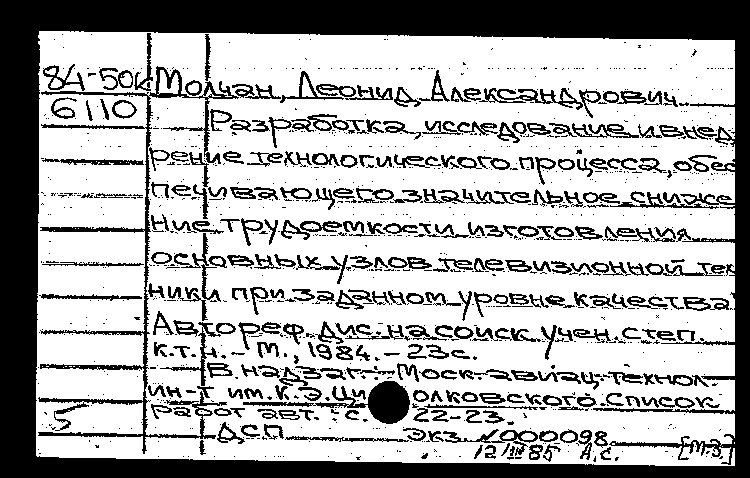 84-50к Молчан, Леонид Александрович
6110
Разработка, исследование и внед
рение технологического процесса, обес
печивающего значительное сниже
ние трудоемкости изготовления
основных узлов телевизионной тех
ники при заданном уровне качества
Автореф. дис. на соиск. учен. степ.
к.т.н. - М., 1984. - 23с.
В надзаг.: Моск. авиац. технол.
ин-т им. К.Э. Циолковского. Список
работ авт.: с. 22-23.
5
ДСП экз. №000098
12/III 85 А.С. [М-3]